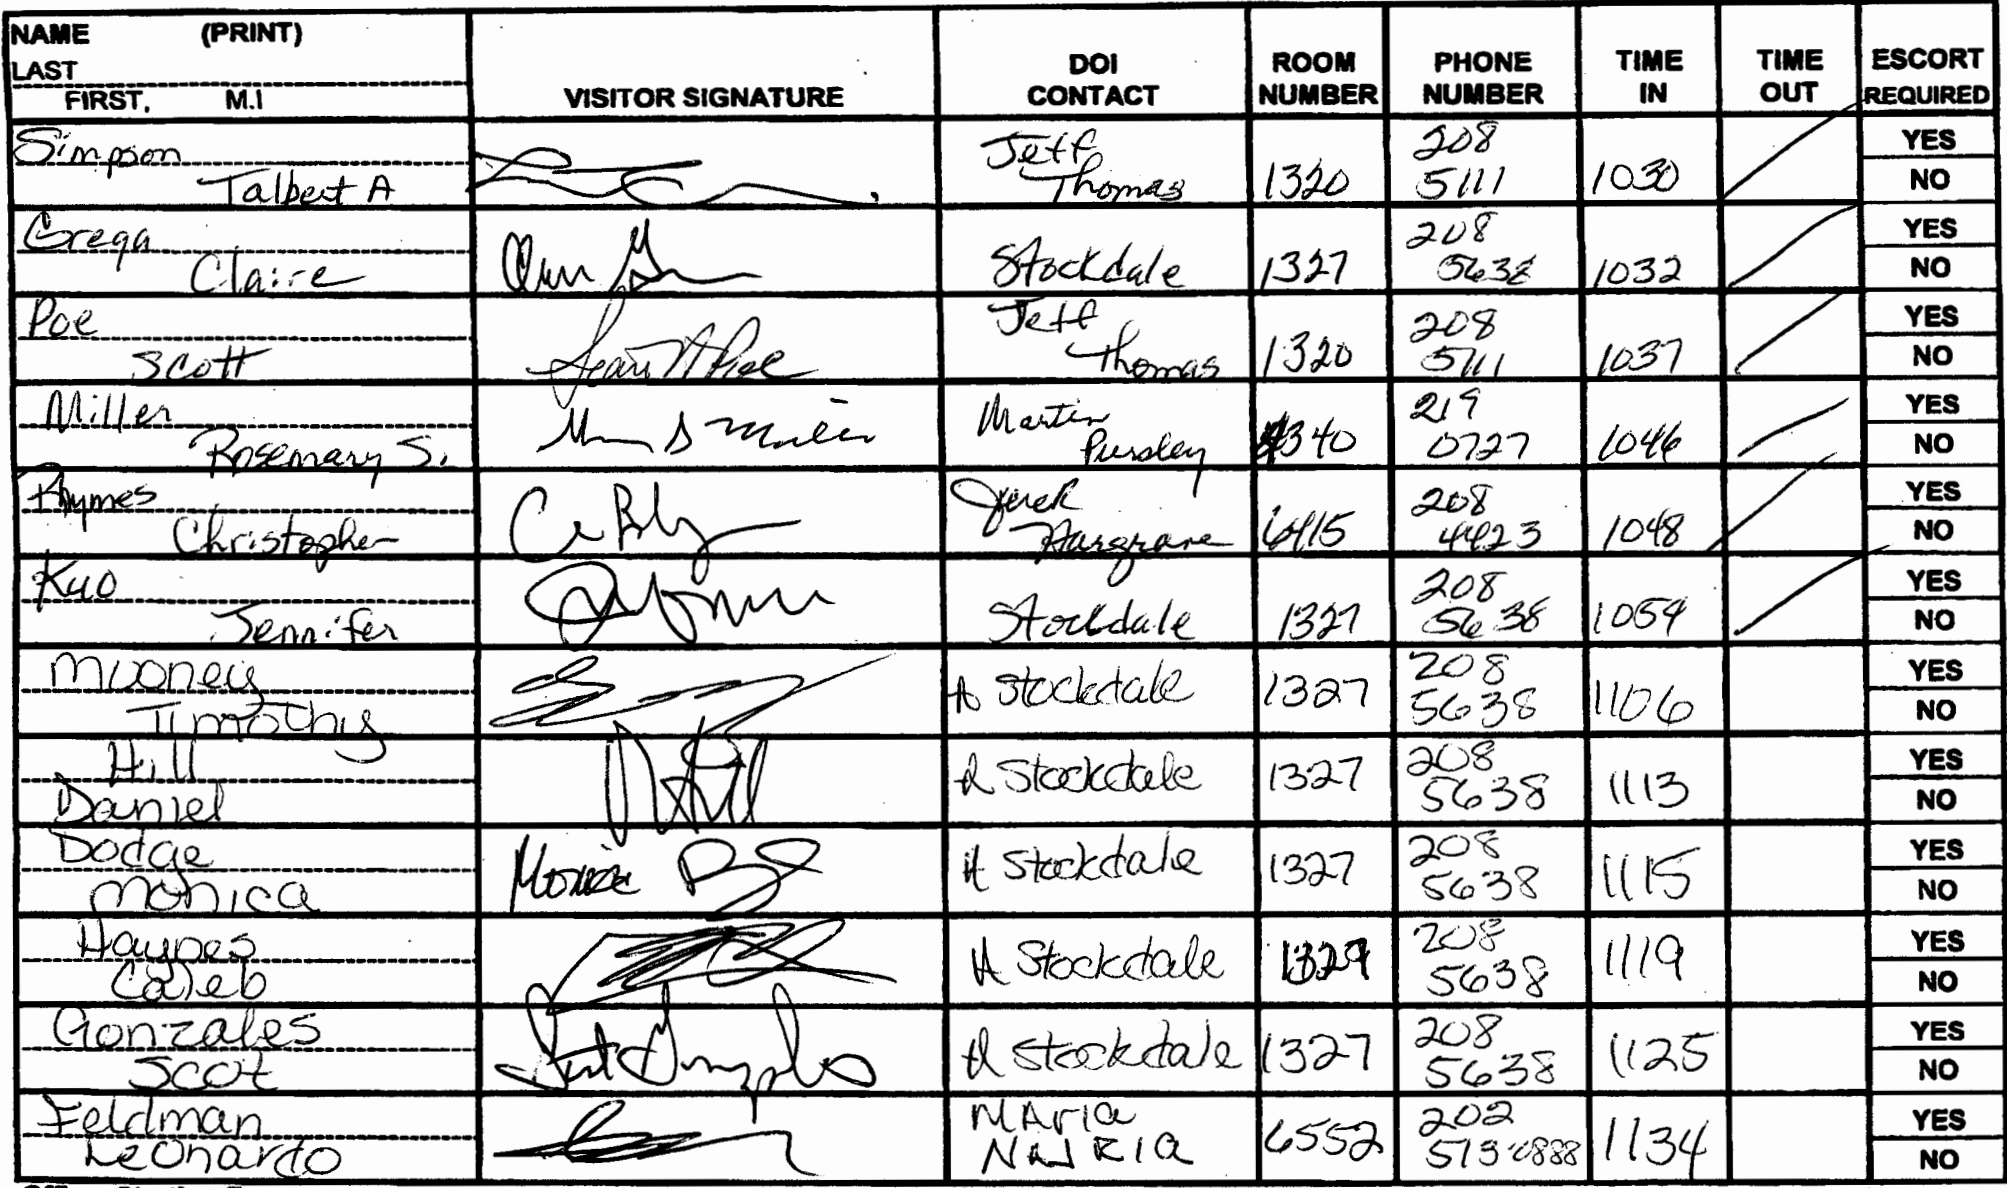 NAME (PRINT)
LAST
FIRST, M.I
VISITOR SIGNATURE
DOI CONTACT
ROOM NUMBER
PHONE NUMBER
TIME IN
TIME OUT
ESCORT REQUIRED
Simpson
Talbert A
Jeff Thomas
1320
208 5111
1030
YES
NO
Grega
Claire
Stockdale
1327
208
1032
YES
NO
Poe
Scott
Jeff Thomas
1320
208 5111
1037
YES
NO
Miller
Rosemary S.
Martin Pursley
219 0727
1046
YES
NO
Rhymes
Christopher
Hargrave
6415
208 4423
1048
YES
NO
Kuo
Jennifer
Stockdale
1327
208 5638
1054
YES
NO
Mooney
Timothy
Stockdale
1327
208 5638
1106
YES
NO
Hill
Daniel
Stockdale
1327
208 5638
1113
YES
NO
Dodge
Monica
H Stockdale
1327
208 5638
1115
YES
NO
Haynes
Caleb
H Stockdale
208 5638
1119
YES
NO
Gonzales
Scot
H Stockdale
1327
208 5638
1125
YES
NO
Feldman
Leonardo
Maria
6552
202
1134
YES
NO